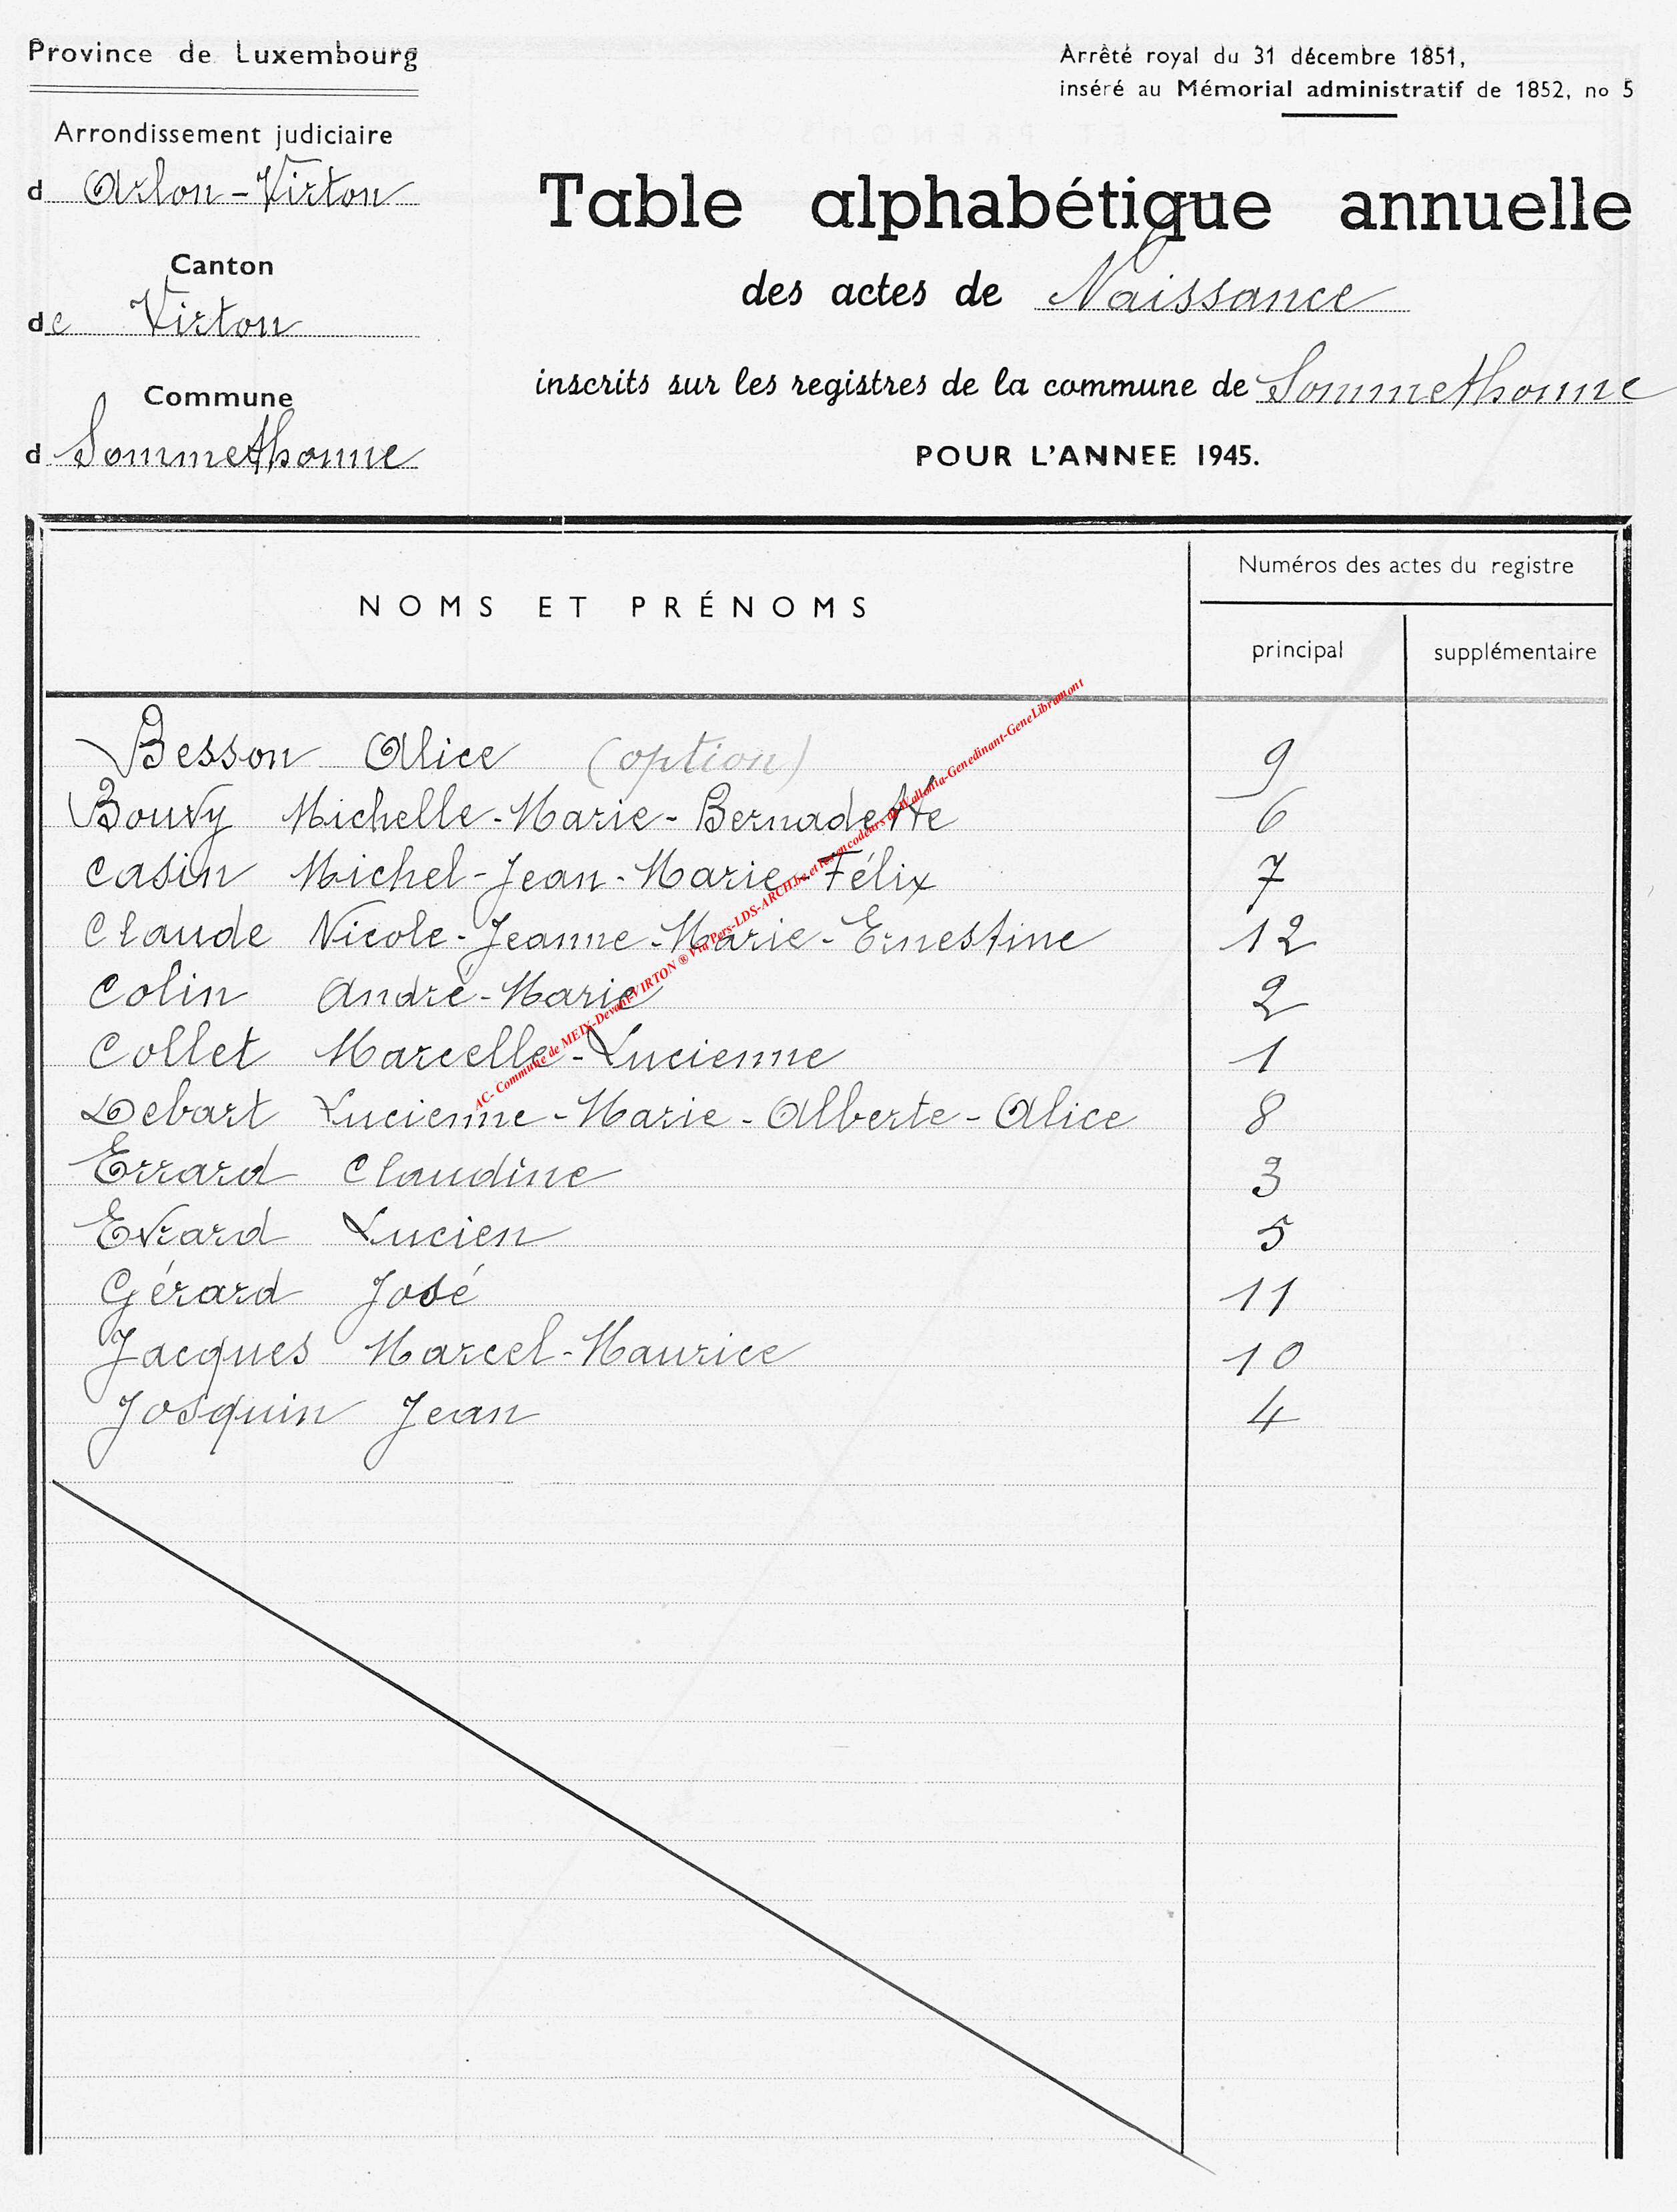 Province de Luxembourg
Arrondissement judiciaire
d Arlon-Virton
Canton
de Virton
Commune
d Sommethonne
Arrêté royal du 31 décembre 1851,
inséré au Mémorial administratif de 1852, no 5
Table alphabétique annuelle
des actes de Naissance
inscrits sur les registres de la commune de Sommethonne
POUR L'ANNEE 1945.
NOMS ET PRÉNOMS
Numéros des actes du registre
principal supplémentaire
Besson Alice (option) 9
Bouvy Michelle-Marie-Bernadette 6
Casin Michel-Jean-Marie-Félix 7
Claude Nicole-Jeanne-Marie-Ernestine 12
Colin André-Marie 2
Collet Marcelle-Lucienne 1
Debart Lucienne-Marie-Alberte-Alice 8
Errard Claudine 3
Evrard Lucien 5
Gérard José 11
Jacques Marcel-Maurice 10
Josquin Jean 4
AC- Commune de MEIX-Devant-VIRTON ® Via Pers-LDS-ARCH.be et les encodeurs de Wallonia-Genedinant-GeneLibramont